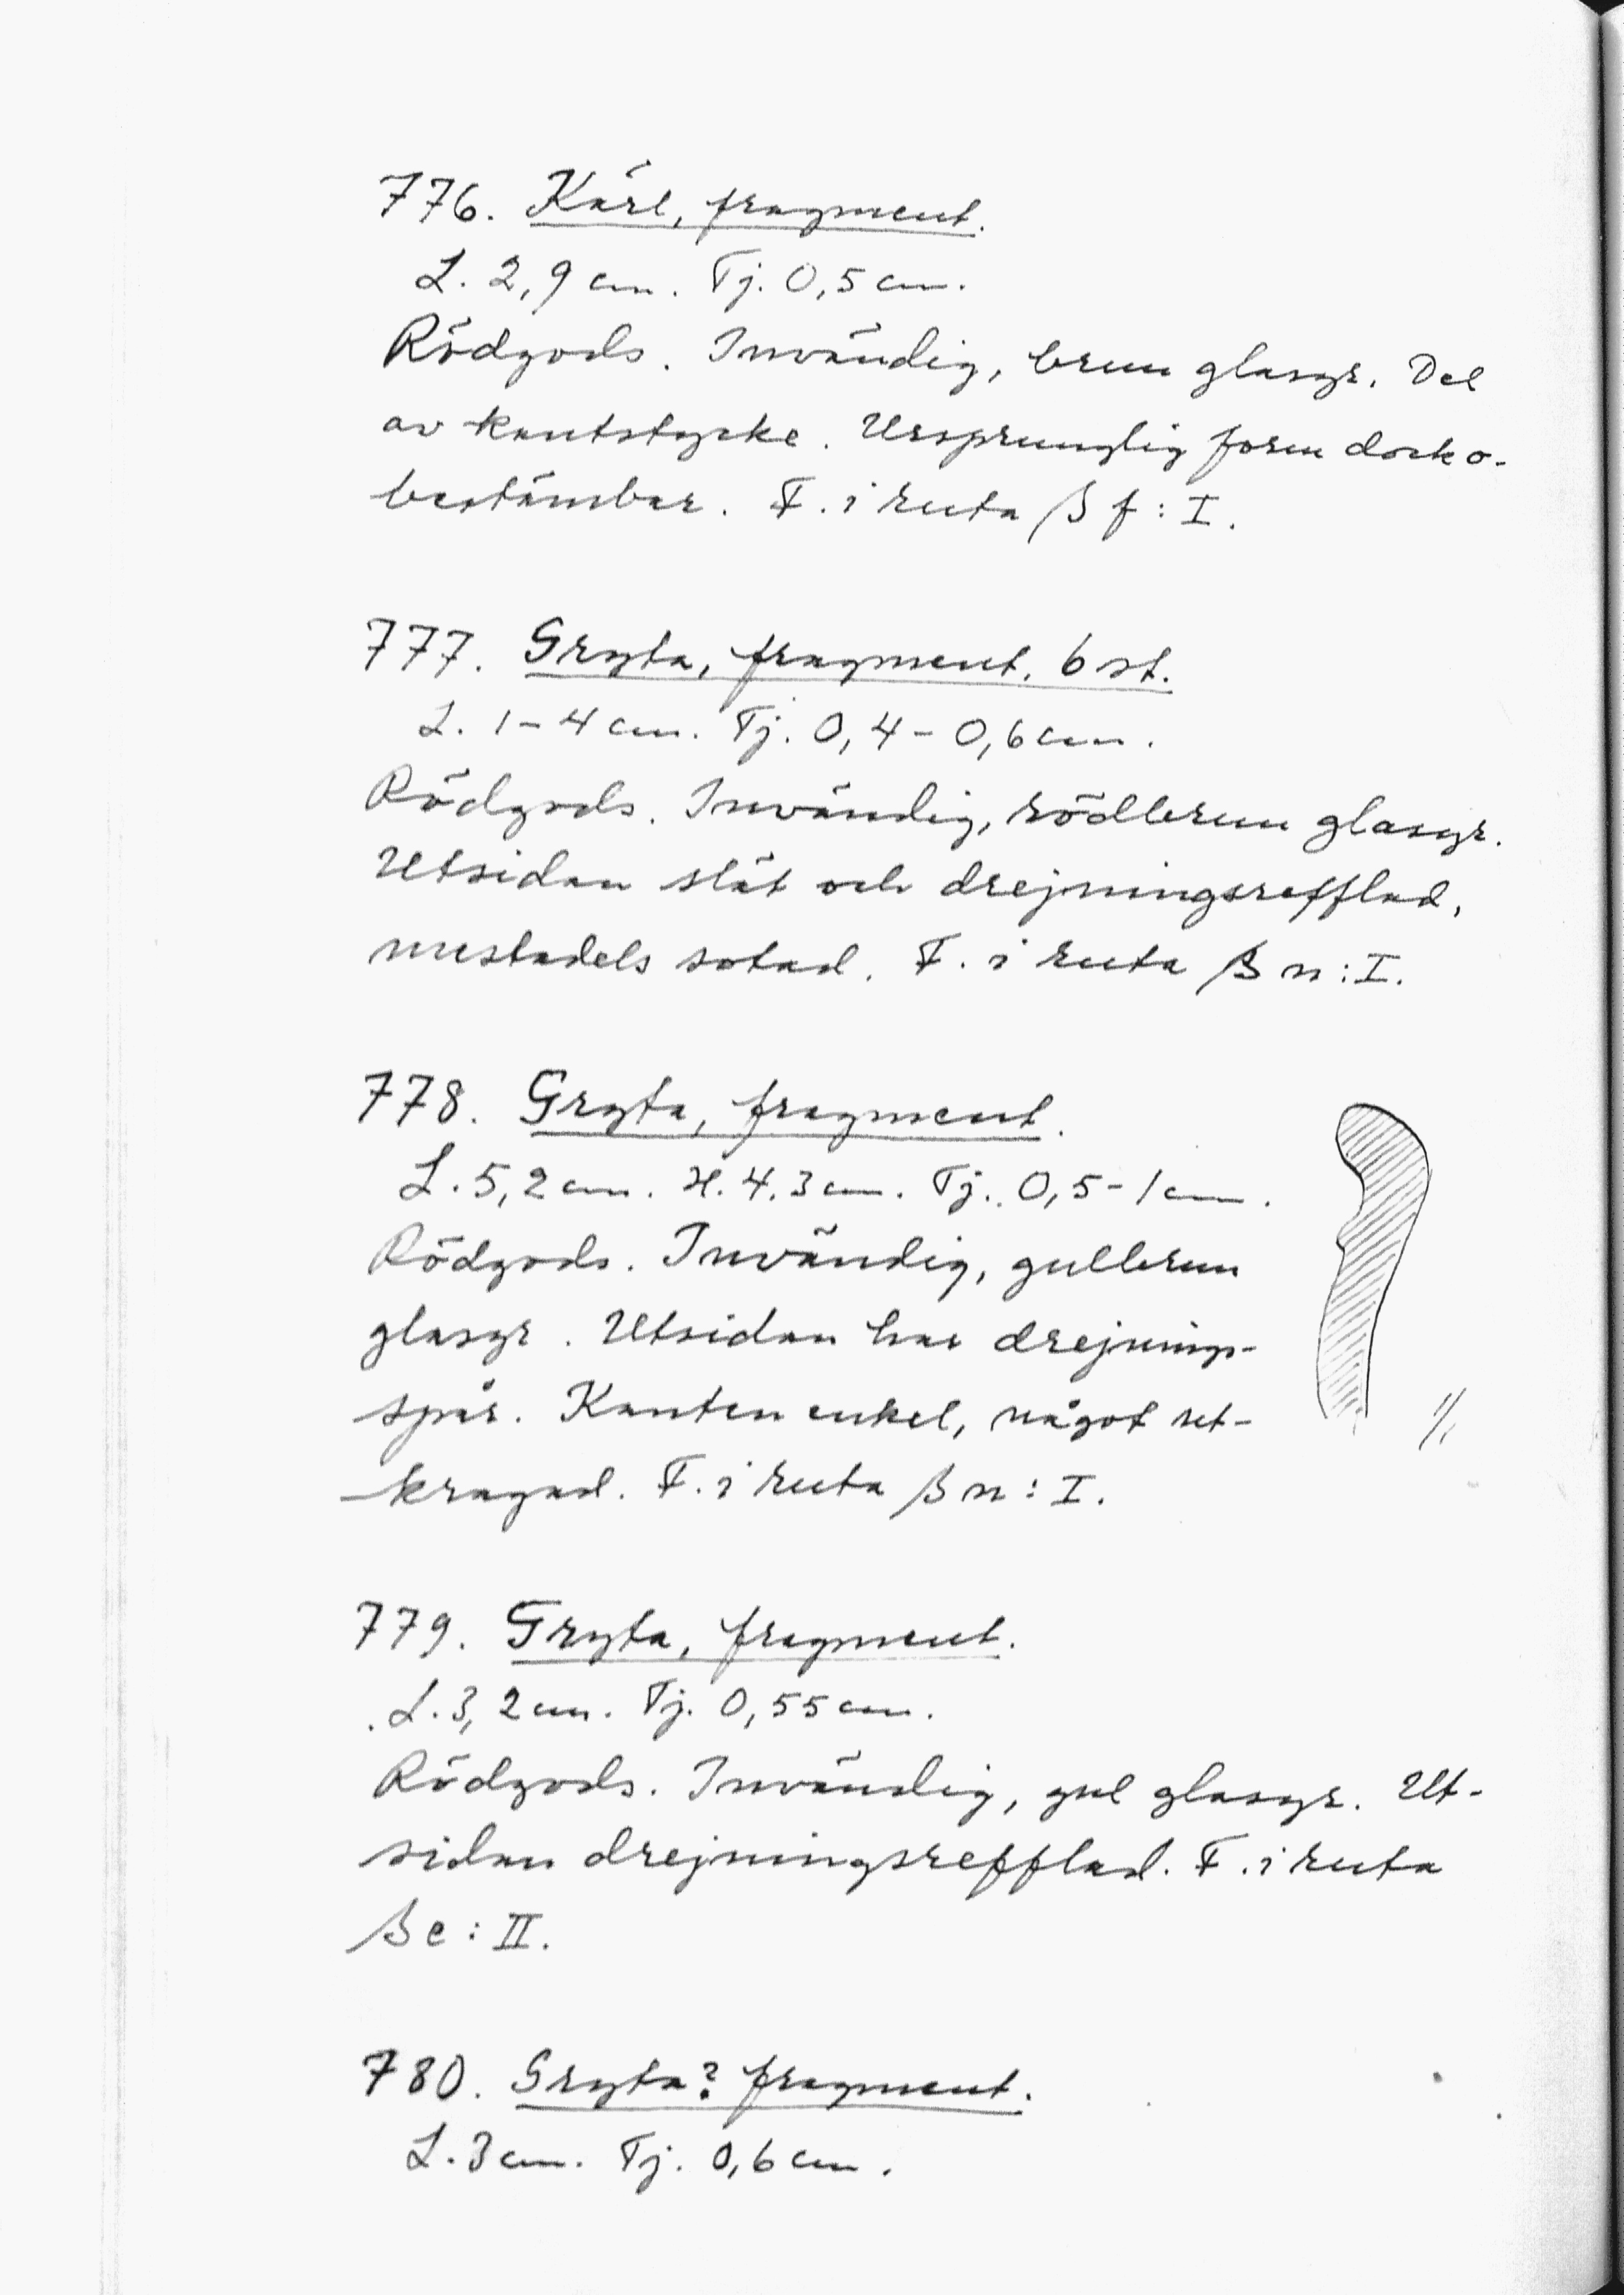 776. Kärl, fragment.
L. 2,9 cm. Tj. 0,5 cm.
Rödgods. Invändig, brun glasyr. Del
av kantstycke. Ursprunglig form dock o-
bestämbar. F. i ruta β f : I.
777. Gryta, fragment. 6 st.
L. 1-4 cm. Tj. 0,4-0,6 cm.
Rödgods. Invändig, rödbrun glasyr.
Utsidan slät och drejningsrefflad,
mestadels sotad. F. i ruta β n : I.
778. Gryta, fragment.
L. 5,2 cm. H. 4,3 cm. Tj. 0,5-1 cm.
Rödgods. Invändig, gulbrun
glasyr. Utsidan har drejnings-
spår. Kanten enkel, något ut-
kragad. F. i ruta β n : I.
1/1
779. Gryta, fragment.
L. 3,2 cm. Tj. 0,55 cm.
Rödgods. Invändig, gul glasyr. Ut-
sidan drejningsrefflad. F. i ruta
β e : II.
780. Gryta? fragment.
L. 3 cm. Tj. 0,6 cm.